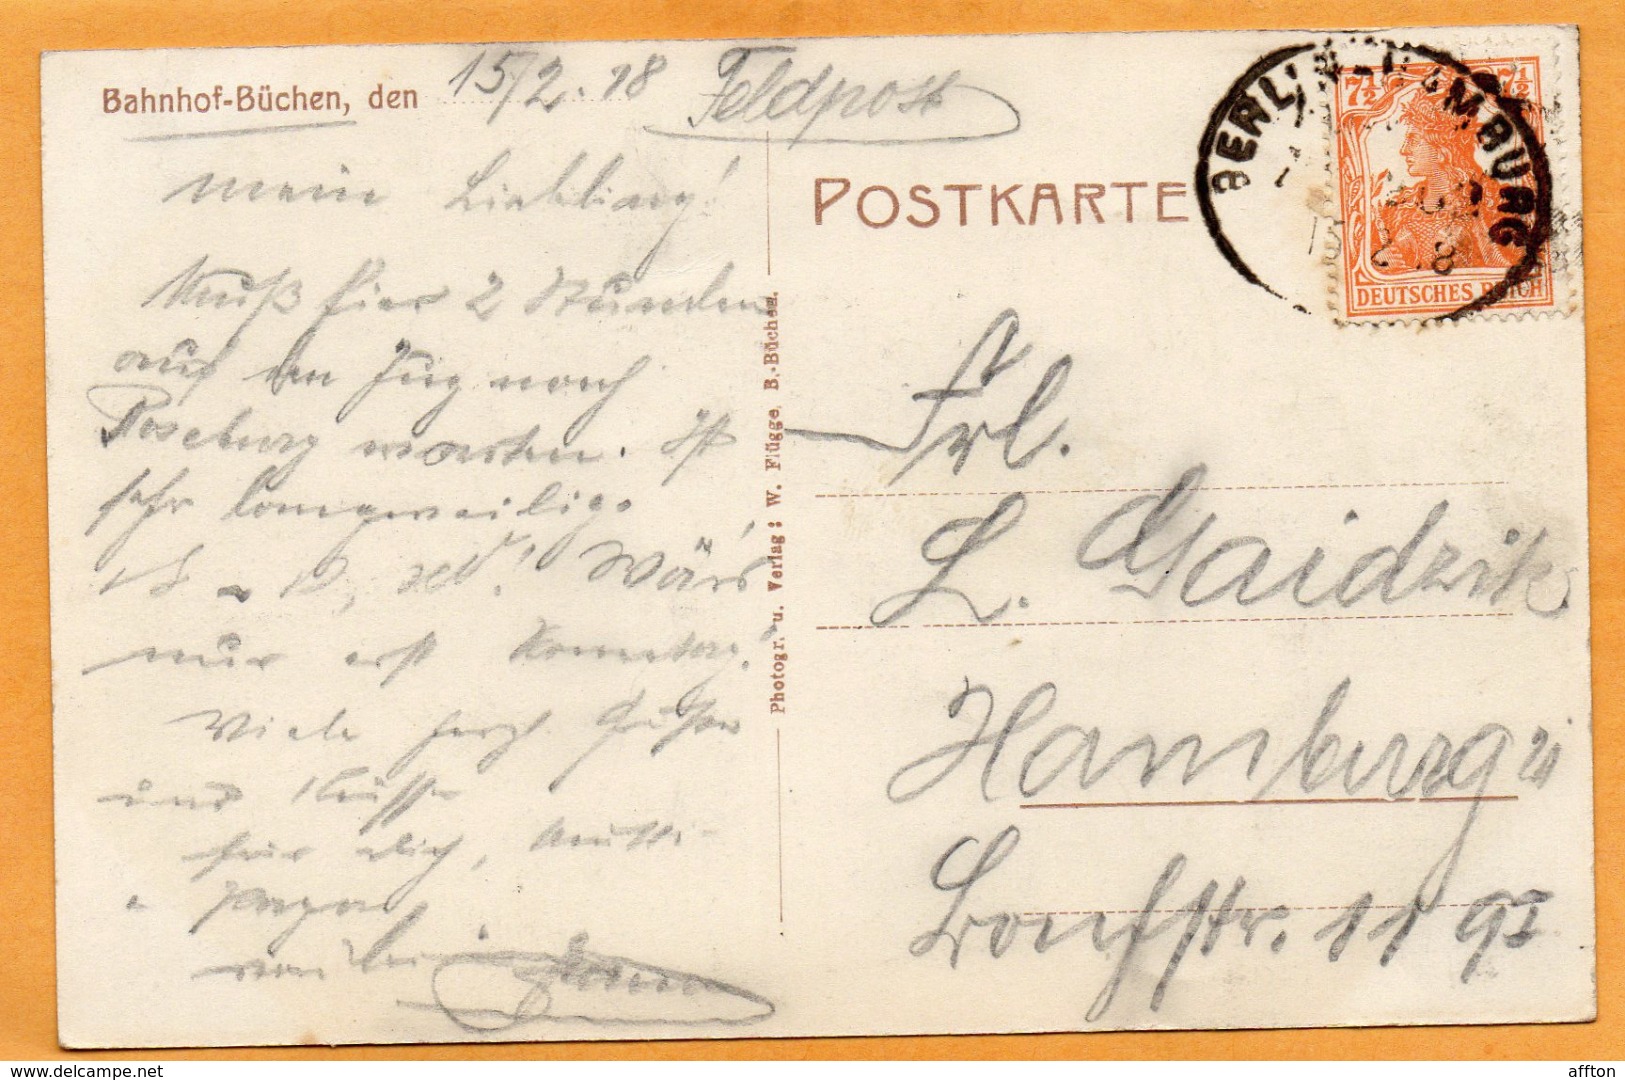 Bahnhof-Büchen, den 15/2.18
Feldpost
mein Liebling!
Muß hier 2 Stunden
auf den Zug nach
Roseburg warten. Ist
sehr langweilig.
Wär's
nur erst Sonntag!
Viele herzl. Grüße
und Küsse
für dich, Mutti
u. Papa
von
POSTKARTE
BERLIN-HAMBURG
7½ 7½
DEUTSCHES REICH
Photogr. u. Verlag: W. Flügge, B.-Büchen.
Frl.
L. Gaidzik
Hamburg 21
11
delcampe.net
affton